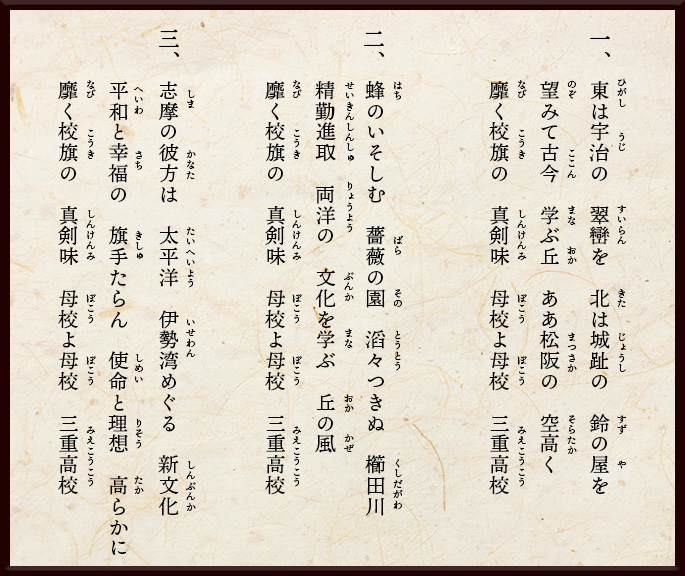 一、
東は宇治の　翠巒を　北は城趾の　鈴の屋を
望みて古今　学ぶ丘　ああ松阪の　空高く
靡く校旗の　真剣味　母校よ母校　三重高校
二、
蜂のいそしむ　薔薇の園　滔々つきぬ　櫛田川
精勤進取　両洋の　文化を学ぶ　丘の風
靡く校旗の　真剣味　母校よ母校　三重高校
三、
志摩の彼方は　太平洋　伊勢湾めぐる　新文化
平和と幸福の　旗手たらん　使命と理想　高らかに
靡く校旗の　真剣味　母校よ母校　三重高校